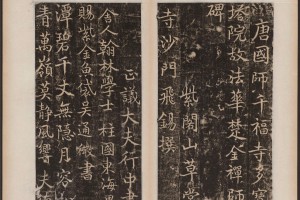 唐國師千福寺多寶
塔院故法華楚金禪師
碑
紫閣山草堂
寺沙門飛錫撰
正議大夫行中書
舍人翰林學士上柱國東海男
賜紫金魚袋吳通微書
潭碧千丈無隱月容
青萬嶺莫静風響夫